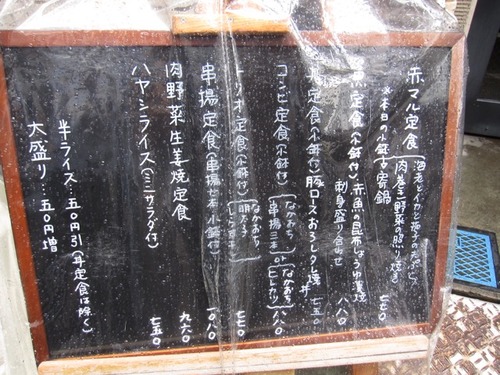 赤マル定食
海老とイカと茄子の天ぷら
肉巻き野菜の照り焼き
※本日の小鉢 寄鍋
七七〇
魚定食(小鉢付)赤魚の昆布しょうゆ漬焼
刺身盛り合せ
八八〇
定食(小鉢付)豚ロースおろしタレ焼き丼
七五〇
コンビ定食(小鉢付)
なかおち
串揚三本
八八〇
トリオ定食(小鉢付)
なかおち
明太子
七七〇
串揚定食(串揚七本 小鉢付)
一〇八〇
肉野菜生姜焼定食
九六〇
ハヤシライス(ミニサラダ付)
七五〇
半ライス…五〇円引(丼定食は除く)
大盛り…五〇円増